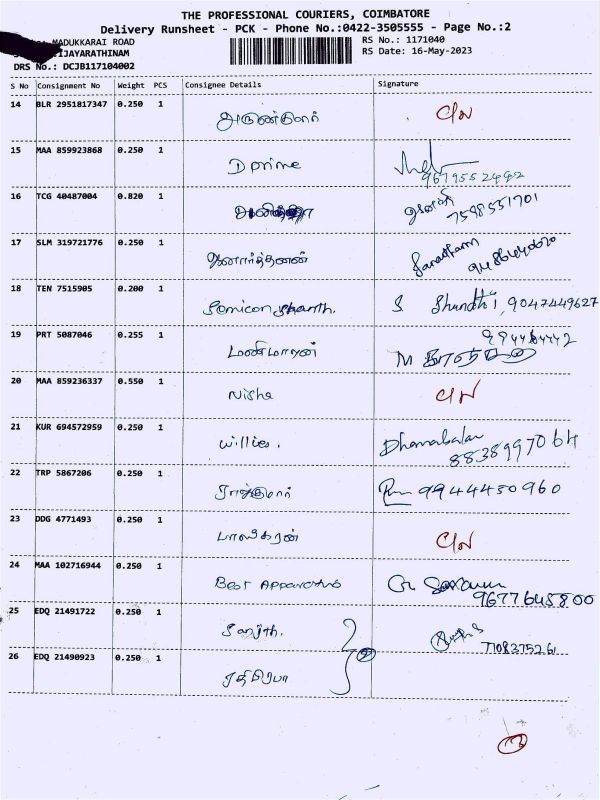 THE PROFESSIONAL COURIERS, COIMBATORE
Delivery Runsheet - PCK - Phone No.:0422-3505555 - Page No.:2
MADUKKARAI ROAD
RS No.: 1171040
IJAYARATHINAM
RS Date: 16-May-2023
DRS No.: DCJB117104002
S No Consignment No Weight PCS Consignee Details Signature
14 BLR 2951817347 0.250 1 அருண்குமார் C/N
15 MAA 859923868 0.250 1 D prime
9679552492
16 TCG 40487004 0.820 1
7598551701
17 SLM 319721776 0.250 1 ஜனார்த்தனன்
18 TEN 7515905 0.200 1 S Shanthi, 9047449627
19 PRT 5087046 0.255 1 மணிமாறன்
20 MAA 859236337 0.550 1 Nisha C/N
21 KUR 694572959 0.250 1 willies. Dhanabalan
8838997064
22 TRP 5867206 0.250 1 ராஜ்குமார் 9944450960
23 DDG 4771493 0.250 1 பாஸ்கரன் C/N
24 MAA 102716944 0.250 1 Best Apparatus
9677645800
25 EDQ 21491722 0.250 1 Sanjith.
7708375261
26 EDQ 21490923 0.250 1 ரதிபிரபா
13